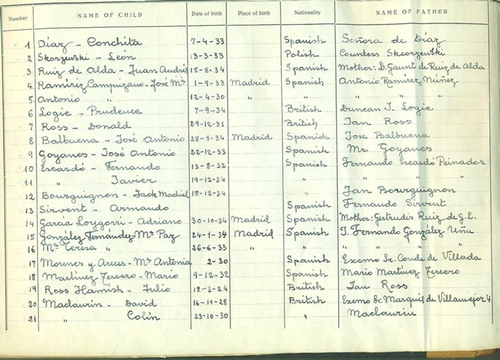 Number NAME OF CHILD Date of birth Place of birth Nationality NAME OF FATHER
1 Díaz - Conchita 7-4-33 Spanish Señora de Díaz
2 Skorzewski - León 3-3-33 Polish Countess Skorzewski
3 Ruiz de Alda - Juan Andrés 15-8-34 Spanish Mother: D. Gaunt de Ruiz de Alda
4 Ramírez Campuzano - José Mª 1-9-33 Madrid Spanish Antonio Ramírez Núñez
5 Antonio 12-4-30 " " " "
6 Logie - Prudence 7-9-34 British Duncan T. Logie
7 Ross - Donald 29-12-31 British Ian Ross
8 Balbuena - José Antonio 28-1-34 Madrid Spanish Jose Balbuena
9 Goyanes - José Antonio 22-12-33 Spanish Mr Goyanes
10 Escardó - Fernando 13-8-32 Spanish Fernando Peinador
11 " Javier 19-12-34 " "
12 Bourguignon - 18-12-34 Jan Bourguignon
13 Sirvent - Armando Spanish Fernando Sirvent
14 García Loygorri - Adriano 30-10-34 Madrid Spanish Mother: Gertrudis Ruiz de G.L.
15 González Fernández Mª Paz 24-1-34 Madrid Spanish J. Fernando González Uña
16 Mª Teresa " 26-6-33 " " "
17 Morenes y Arces - Mª Antonia 2-30 Spanish Excmo Sr. Conde de Villada
18 Martínez Tercero - Mario 9-12-32 Spanish Mario Martínez Tercero
19 Ross Hamish - Julio 18-2-24 British Ian Ross
20 Maclaurin - David 16-11-28 British Excmo Sr. Marqués de Villamejor
21 " Colín 23-10-30 " Maclaurin